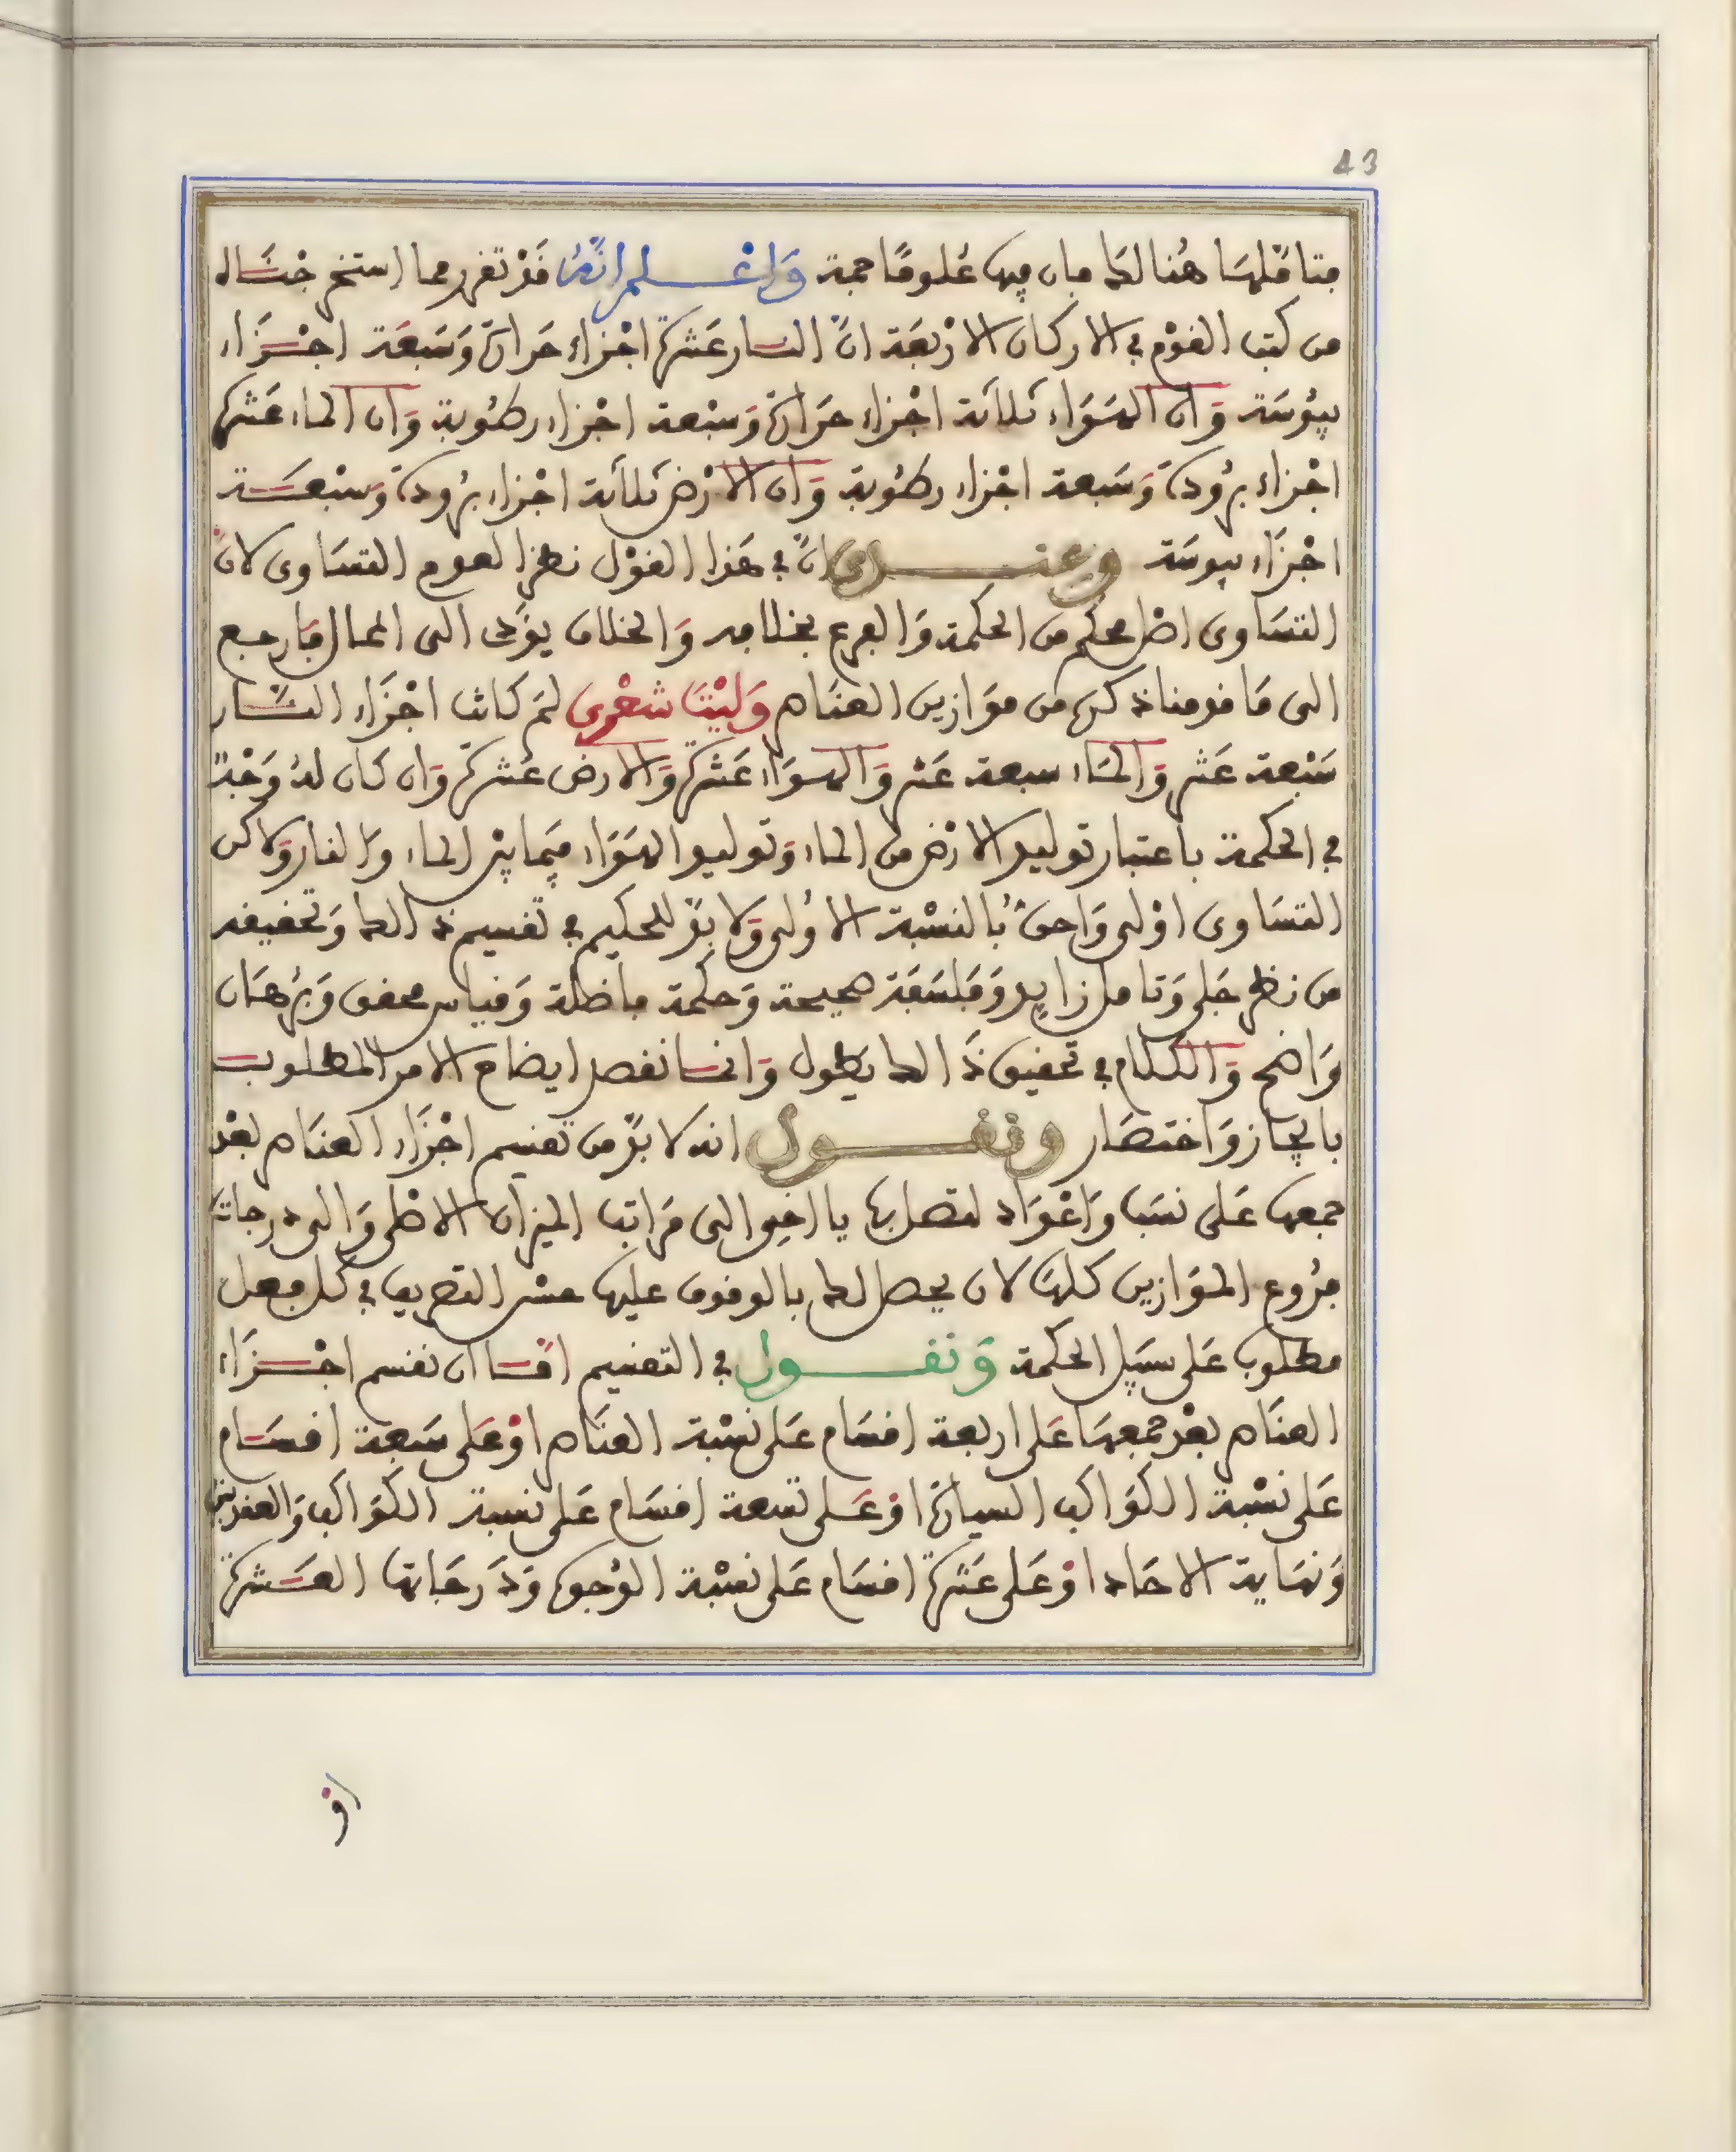 43
فتاملها هنالك فان فيها علوما جمة وَاعْلم انّهُ قَدْ تقرر مما استخرجناه
من كتب القوْم في الاركان الارْبعَة انّ النار عَشرة اجْزاء حَرارة وَسَبعَة اجْزَاء
يبُوسَة وَان الهَوَاء ثلاثة اجْزاء حَرارة وَسبْعة اجْزاء رطُوبة وَان الماء عَشرة
اجْزاء برُودة وَسَبعة اجْزاء رطُوبة وَان الارْض ثلاثة اجْزاء برُودة وَسبْعَة
اجْزَاء يبوسَة وعندى انّ في هَذا القوْل نظرا لعدم التسَاوى لانّ
التسَاوى اصْل محكم من الحكمة وَالفرع بخلافه وَالخلاف يؤدى الى المحال فارجع
الى مَا قدمنا ذكره من موَازين العنَاصر وَليْتَ شعْرى لمَ كانت اجْزَاء النَّار
سَبْعة عَشر وَالماء سبعة عَشر وَالهوَاء عَشرة وَالارض عَشرة وَان كان لهُ وَجْه
في الحكمة باعتبار توليد الارْض من الماء وَتوليد الهَوَاء فيما بيْن الماء وَالنار وَلاكن
التسَاوى اوْلى وَاحق بالنسْبة الاولى وَلا بدّ للحكيم في تقسيم ذالك وَتحقيقه
من نظر جَلي وَتامل زايد وَفلسَفَة صحيحة وَحكمة فاضلة وَقياس محقق وَبرْهَان
وَاضح وَالكلام في تحقيق ذَالك يَطول وَانما نقصد ايضاح الامر المطلوب
بايجاز وَاختصَار ونقول انه لا بدّ من تقسيم اجْزَاء العنَاصر بعْد
جمعها عَلى نسَب وَاعْدَاد لتصل بها يا اخي الى مَراتب الميزان الاصْلي وَالى درجات
فرُوع الموَازين كلهَا لان يحصل لك بالوقوف عليها حسْن التصريف في كل فعل
مطلوب عَلى سبَيل الحكمة وَنقول في التقسيم امّا ان نقسم اجْزَاء
العنَاصر بعْد جمعهَا عَلى اربعة اقسَام عَلى نسْبة العنَاصر اوْ عَلى سَبعة اقسَام
عَلى نسْبة الكوَاكب السيارة اوْ عَلى تسعة اقسَام عَلى نسبة الكوَاكب وَالعقدتين
وَنهَاية الاحَاد اوْ عَلى عَشرة اقسَام عَلى نسْبة الوُجوه وَدَرجَاتها العَشرة
اوْ